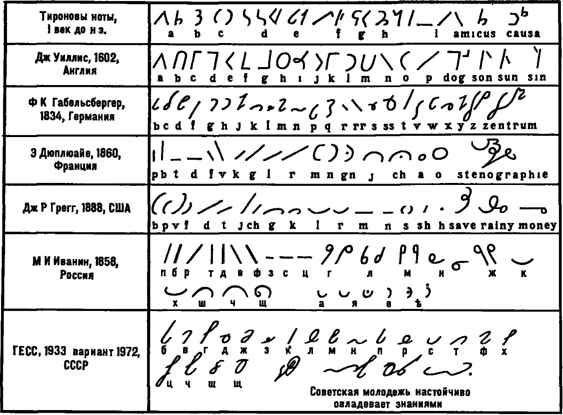 Тироновы ноты,
I век до н э.
a b c d e f g h l amicus causa
Дж Уиллис, 1602,
Англия
a b c d e f g h i j k l m n o p dog son sun sin
Ф К Габельсбергер,
1834, Германия
b c d f g h j k l m n p q r r r s ss t v w x y z zentrum
Э Дюплюайе, 1860,
Франция
p b t d f v k g l r m n gn j ch a o stenographie
Дж Р Грегг, 1888, США
b p v f d t j ch g k l r m n s sh h save rainy money
М И Иванин, 1858,
Россия
п б р т д в ф з с ц г л м н ж к
х ш ч щ а я е ѣ
ГЕСС, 1933 вариант 1972,
СССР
б в г д ж з к л м н п р с т ф х
ц ч щ щ
Советская молодежь настойчиво
овладевает знаниями